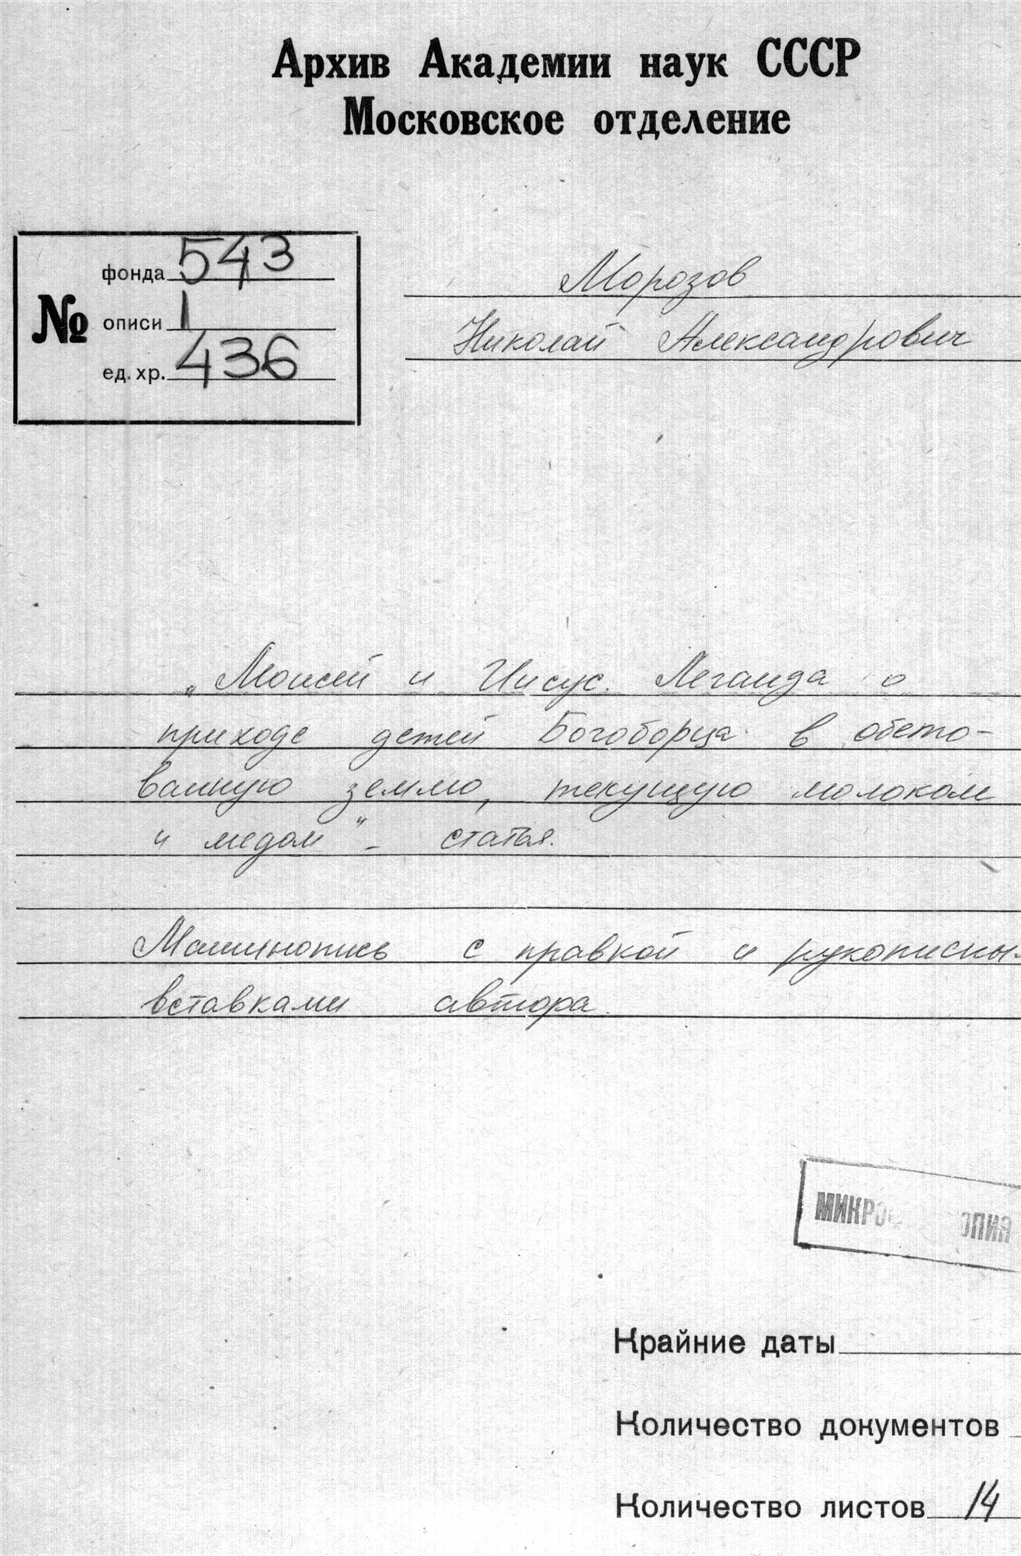 Архив Академии наук СССР
Московское отделение
№
фонда 543
описи 1
ед. хр. 436
Морозов
Николай Александрович
„Моисей и Иисус. Легенда о
приходе детей Богоборца в обето-
ванную землю, текущую молоком
и медом" - статья.
Машинопись с правкой и рукописны
вставками автора.
МИКРО ОПИЯ
Крайние даты
Количество документов
Количество листов 14